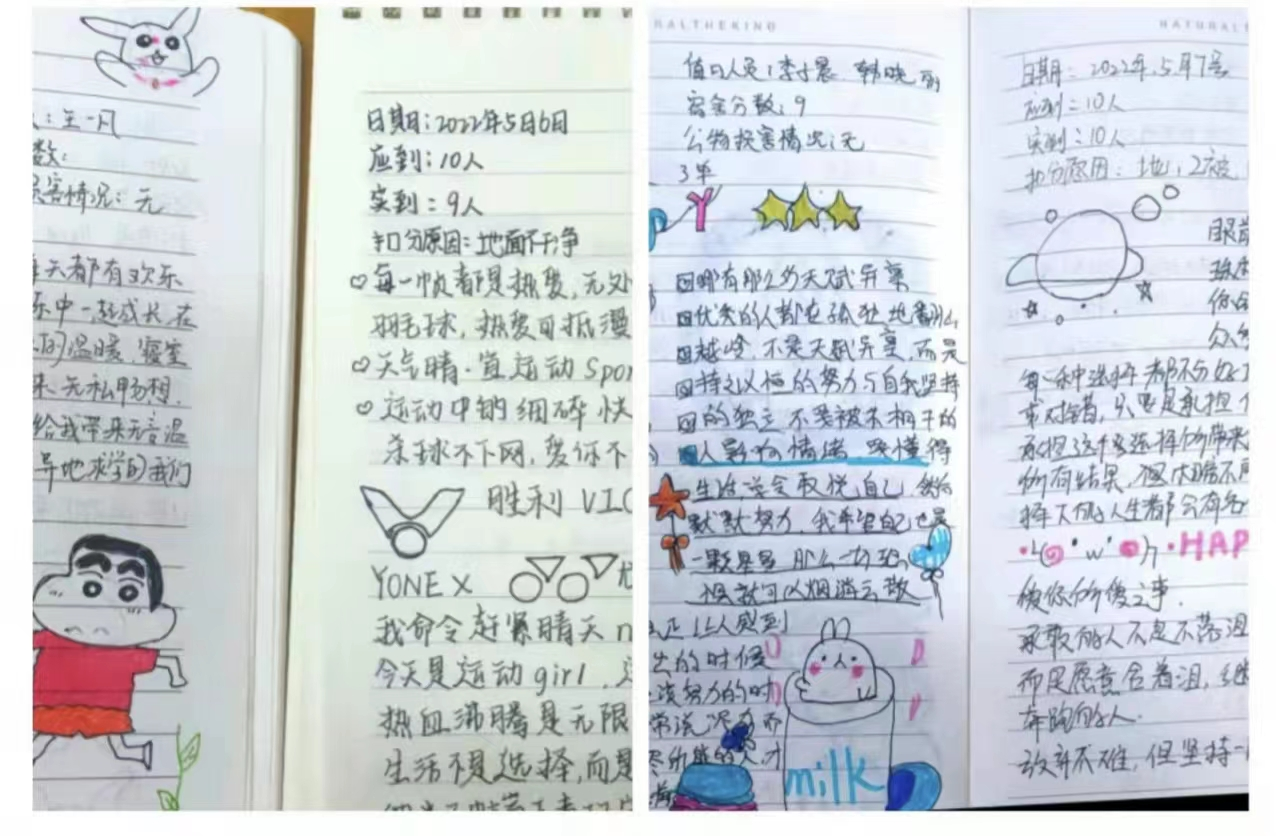 ：王一凡
数：
害情况：无
每天都有欢乐
乐中一起成长，在
的温暖，寝室
来无私畅想，
给我带来无言温
异地求学的我们
日期：2022年5月6日
应到：10人
实到：9人
扣分原因：地面不干净
每一帧都是热爱，无处
羽毛球，热爱可抵漫
天气晴·宜运动 Spor
运动中的细碎快
杀球不下网，爱你不
胜利 VIC
YONEX
我命令赶紧晴天
今天是运动girl，
热血沸腾是无限
生活不是选择，而是
RALTHEKING
值日人员：李 晨 韩晓
宿舍分数：9
公物损害情况：无
3单
P Y
哪有那么多天赋异禀
优秀的人都在孤独地翻山
越岭，不是天赋异禀，而是
持之以恒的努力与自我坚持
的独立 不要被不相干的
人影响情绪 要懂得
生活 学会取悦自己
默默努力，我希望自己也是
一颗星星 那么一切
恨就可以烟消云散
正让人感到
的时候
该努力的时
常说 尽力而
尽所能的人才
milk
NATURAL
日期：2022年.5月7号
应到：10人
实到：10人
扣分原因：地，2被
眼前
你的
每一种选择都不分好
或对错，只要是承担
承担这个选择所带来
所有结果，但大胆不
择大的人生都会有
·HAP
傻你所傻之事.
承载的人不是不落泪
而是愿意含着泪，继
奔跑的人.
放弃不难，但坚持一